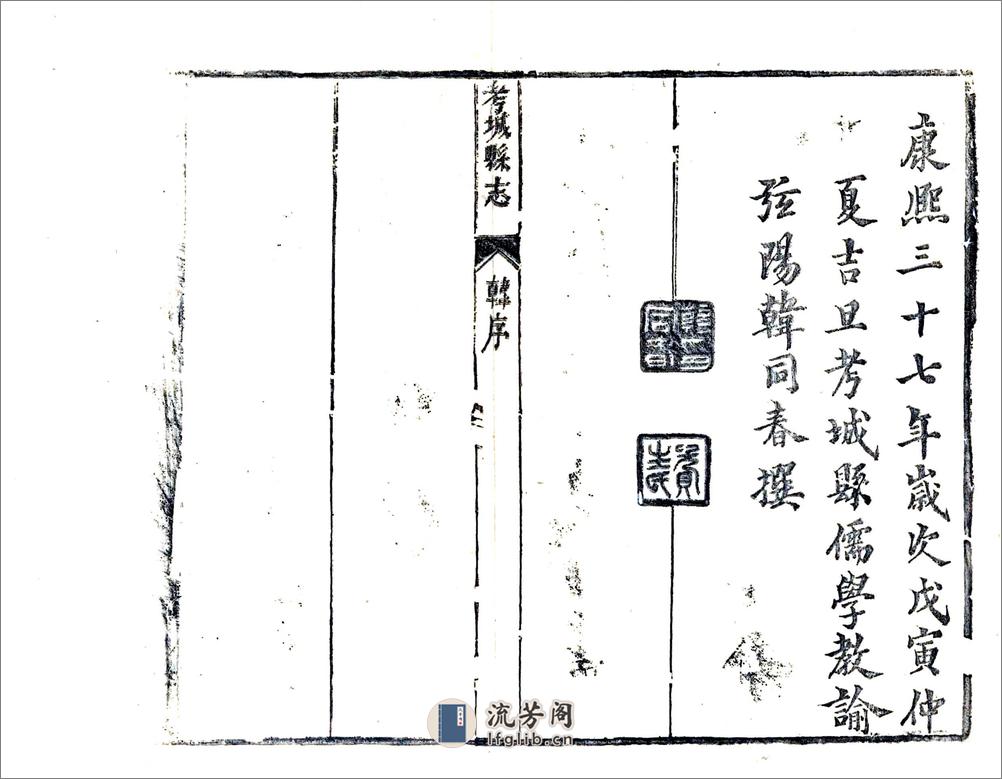 康熙三十七年歲次戊寅仲
夏吉旦考城縣儒學教諭
弦陽韓同春撰
考城縣志
韓序
流芳阁
lfglib.cn